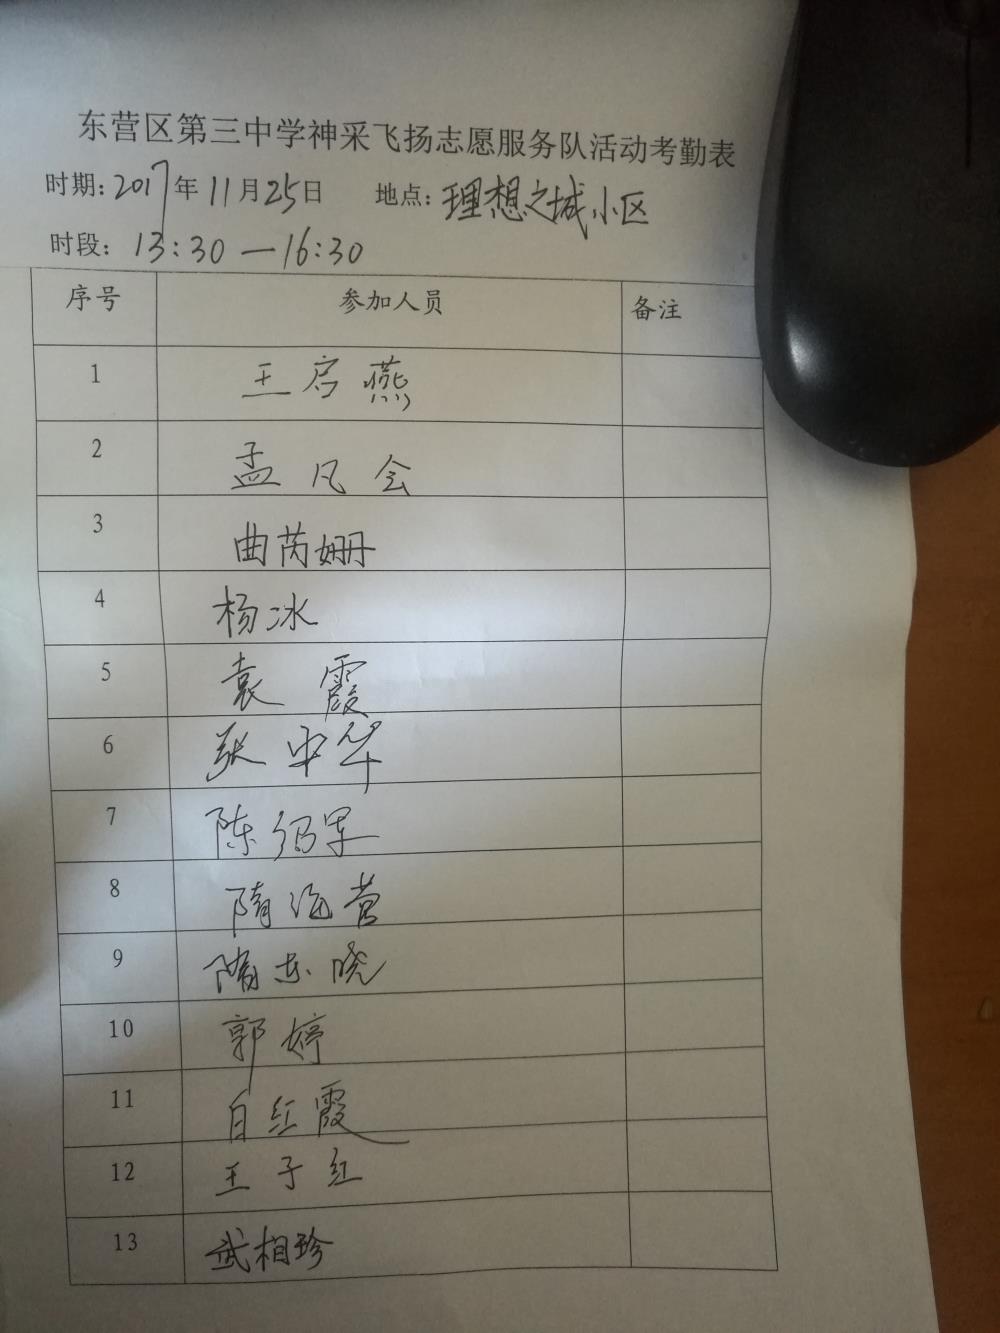 东营区第三中学神采飞扬志愿服务队活动考勤表
时期：2017年11月25日 地点：理想之城小区
时段：13:30—16:30
序号 参加人员 备注
1 王启燕
2 孟凡会
3 曲芮姗
4 杨冰
5 袁霞
6 张中华
7 陈绍军
8 隋海营
9 隋志晓
10 郭婷
11 白红霞
12 王子红
13 武相珍